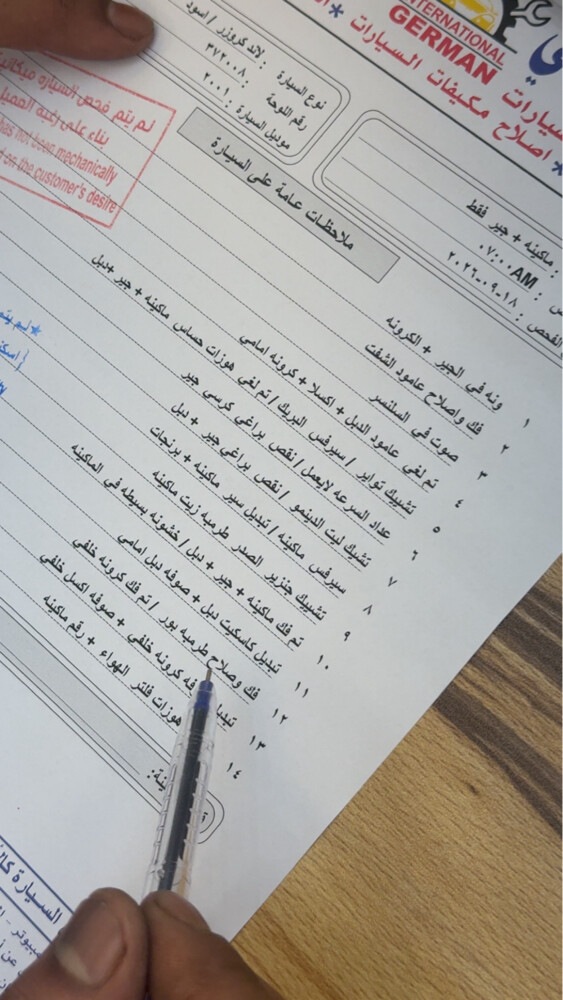 INTERNATIONAL
GERMAN
* اصلاح مكيفات السيارات *
: ماكينه + جير فقط
: ٠٧:٠٠AM
الفحص : ١٨-٠٩-٢٠٢٦
نوع السيارة : لاند كروزر / اسود
رقم اللوحة : ٣٧٢٠٠٨
موديل السيارة : ٢٠٠١
لم يتم فحص السياره
بناء على رغبة العميل
has not been mechanically
on the customer's desire
ملاحظات عامة على السيارة
١ ونه في الجير + الكرونه
٢ فك واصلاح عامود الشفت
٣ صوت في السلنسر
٤ تم لغي عامود الدبل + اكسلا + كرونه امامي
٥ تشييك تواير / سيرفس البريك / تم لغي هوزات حساس ماكينه + جير + دبل
٦ عداد السرعه لايعمل / نقص براغي كرسي جير
٧ تشيك ليت الدينمو / نقص براغي جير + دبل
٨ سيرفس ماكينه / تبديل سير ماكينه + برنجات
٩ تشييك جنزير الصدر طرمبه زيت ماكينه
١٠ تم فك ماكينه + جير + دبل / خشونه بسيطه في الماكينه
١١ تبديل كاسكيت دبل + صوفه دبل امامي
١٢ فك وصلاح طرمبه بور / تم فك كرونه خلفي
١٣ كرونه خلفي + صوفه اكسل خلفي
١٤ هوزات فلتر الهواء + رقم ماكينه
السيارة